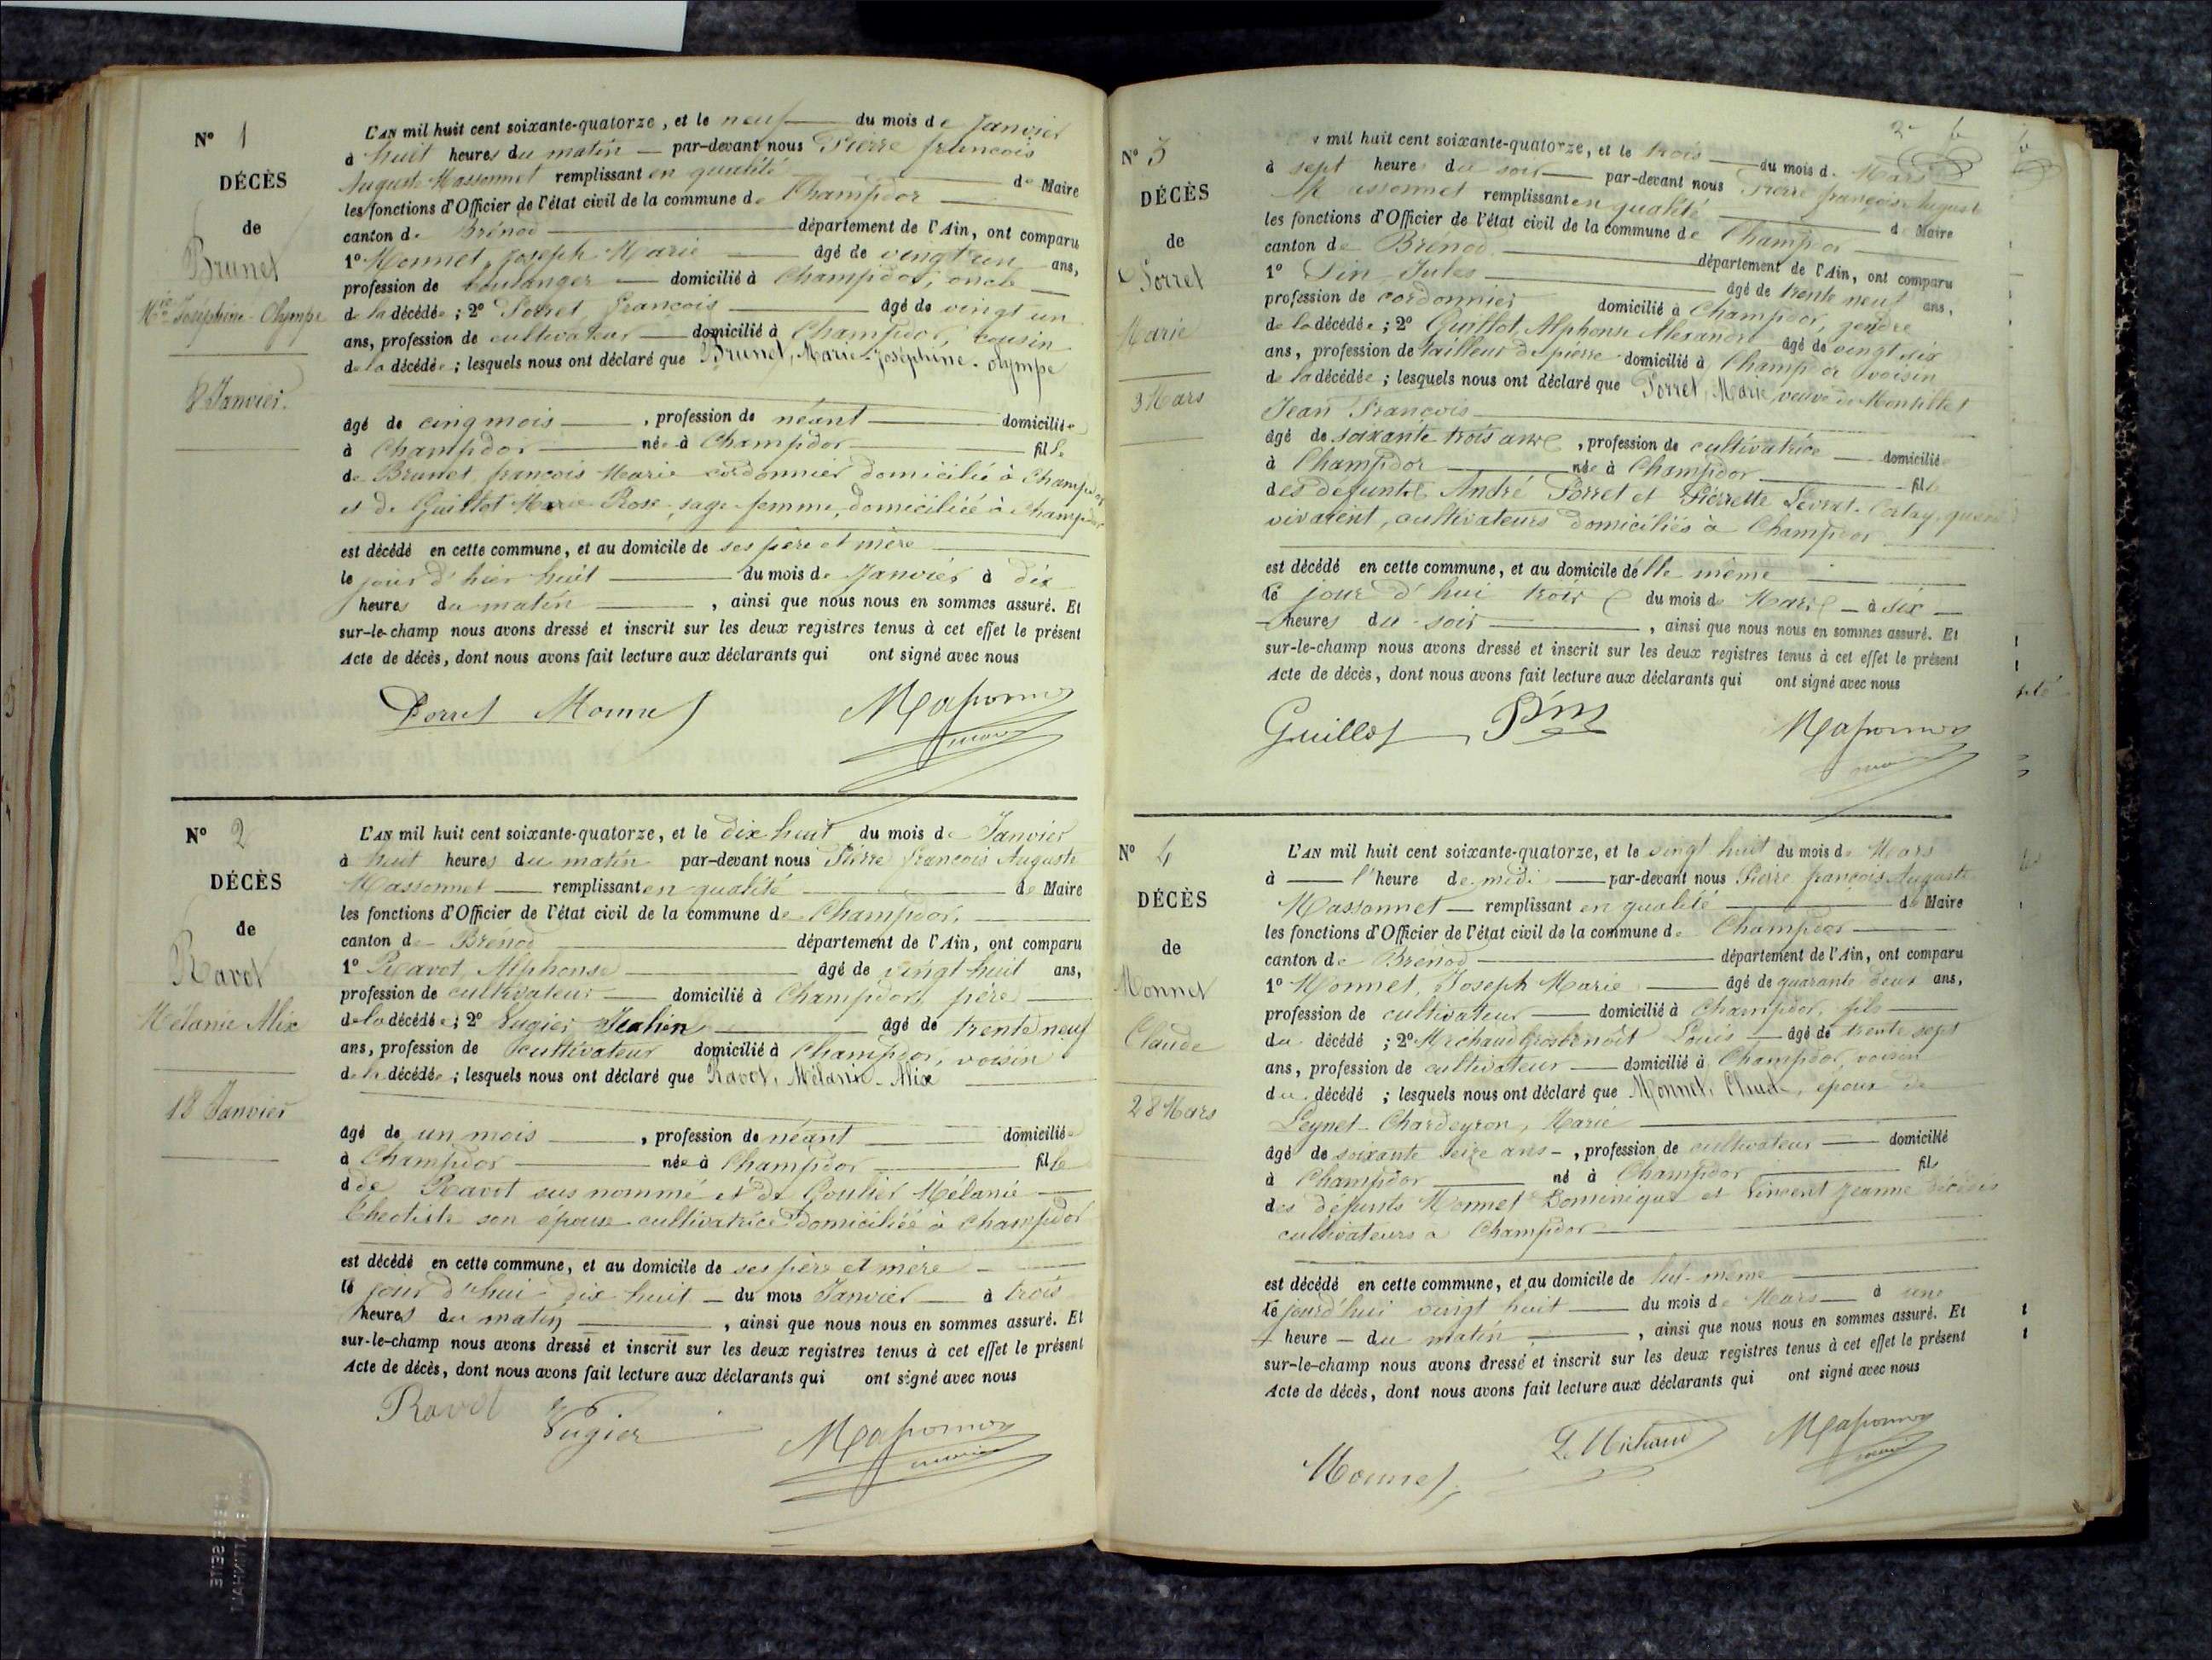 N° 1
DÉCÈS
de
Brunet
Mie Joséphine Olympe
8 Janvier.
L'AN mil huit cent soixante-quatorze, et le neuf du mois de Janvier
à huit heures du matin par-devant nous Pierre françois
Auguste Massonnet remplissant en qualité de Maire
les fonctions d'Officier de l'état civil de la commune de Champdor
canton de Brénod département de l'Ain, ont comparu
1° Monnet, Joseph Marie âgé de vingt un ans,
profession de boulanger domicilié à Champdor, oncle
de la décédée ; 2° Porret François âgé de vingt un
ans, profession de cultivateur domicilié à Champdor, cousin
de la décédée ; lesquels nous ont déclaré que Brunet, Marie-Joséphine-olympe
âgé de cinq mois , profession de néant domiciliée
à Champdor née à Champdor fille
de Brunet, françois Marie cordonnier domicilié à Champdor
et de Guillot Marie Rose, sage femme, domiciliée à champdor
est décédé en cette commune, et au domicile de ses père et mère
le jour d'hier huit du mois de Janvier à dix
heures du matin , ainsi que nous nous en sommes assuré. Et
sur-le-champ nous avons dressé et inscrit sur les deux registres tenus à cet effet le présent
Acte de décès, dont nous avons fait lecture aux déclarants qui ont signé avec nous
Porret Monnet Massonnet
maire
N° 2
DÉCÈS
de
Ravot
Mélanie Alix
18 Janvier
L'AN mil huit cent soixante-quatorze, et le dix huit du mois de Janvier
à huit heures du matin par-devant nous Pierre françois Auguste
Massonnet remplissant en qualité de Maire
les fonctions d'Officier de l'état civil de la commune de Champdor,
canton de Brénod département de l'Ain, ont comparu
1° Ravot, Alphonse âgé de vingt huit ans,
profession de cultivateur domicilié à Champdor, père
de la décédée ; 2° Vugier âgé de trente neuf
ans, profession de cultivateur domicilié à Champdor, voisin
de la décédée ; lesquels nous ont déclaré que Ravot, Mélanie-Alix
âgé de un mois , profession de néant domiciliée
à Champdor née à Champdor fille
de Ravot sus nommé et de Goulier Mélanie
Theotiste son épouse cultivatrice domiciliée à champdor
est décédé en cette commune, et au domicile de ses père et mère
le jour d'hui dix huit du mois Janvier à trois
heures du matin , ainsi que nous nous en sommes assuré. Et
sur-le-champ nous avons dressé et inscrit sur les deux registres tenus à cet effet le présent
Acte de décès, dont nous avons fait lecture aux déclarants qui ont signé avec nous
Ravot Vugier Massonnet
maire
N° 3
DÉCÈS
de
Porret
Marie
3 Mars
mil huit cent soixante-quatorze, et le trois du mois de Mars
à sept heures du soir par-devant nous Pierre françois Auguste
Massonnet remplissant en qualité de Maire
les fonctions d'Officier de l'état civil de la commune de Champdor
canton de Brénod département de l'Ain, ont comparu
1° Pin Jules âgé de trente neuf ans,
profession de cordonnier domicilié à Champdor, gendre
de la décédée ; 2° Guillot, Alphonse Alexandre âgé de vingt six
ans, profession de tailleur de pierre domicilié à Champdor voisin
de la décédée ; lesquels nous ont déclaré que Porret, Marie, veuve de Montillet
Jean François
âgé de soixante trois ans , profession de cultivatrice domiciliée
à Champdor née à Champdor fille
des défunts André Porret et Pierrette Levrat-Cortay, quand
vivaient, cultivateurs domiciliés à Champdor
est décédé en cette commune, et au domicile d'elle même
le jour d'hui trois du mois de Mars à six
heures du soir , ainsi que nous nous en sommes assuré. Et
sur-le-champ nous avons dressé et inscrit sur les deux registres tenus à cet effet le présent
Acte de décès, dont nous avons fait lecture aux déclarants qui ont signé avec nous
Guillot Pin Massonnet
maire
N° 4
DÉCÈS
de
Monnet
Claude
28 Mars
L'AN mil huit cent soixante-quatorze, et le vingt huit du mois de Mars
à l'heure de midi par-devant nous Pierre françois Auguste
Massonnet remplissant en qualité de Maire
les fonctions d'Officier de l'état civil de la commune de Champdor
canton de Brénod département de l'Ain, ont comparu
1° Monnet, Joseph Marie âgé de quarante deux ans,
profession de cultivateur domicilié à Champdor, fils
du décédé ; 2° Michaud Grosbenoît Louis âgé de trente sept
ans, profession de cultivateur domicilié à Champdor, voisin
du décédé ; lesquels nous ont déclaré que Monnet, Claude, époux de
Leynet-Chardeyron, Marie
âgé de soixante seize ans , profession de cultivateur domicilié
à Champdor né à Champdor fils
des défunts Monnet Dominique et Vincent Jeanne décédés
cultivateurs à Champdor
est décédé en cette commune, et au domicile de lui-même
le jourd'hui vingt huit du mois de Mars à une
heure du matin , ainsi que nous nous en sommes assuré. Et
sur-le-champ nous avons dressé et inscrit sur les deux registres tenus à cet effet le présent
Acte de décès, dont nous avons fait lecture aux déclarants qui ont signé avec nous
Monnet L. Michaud Massonnet
maire